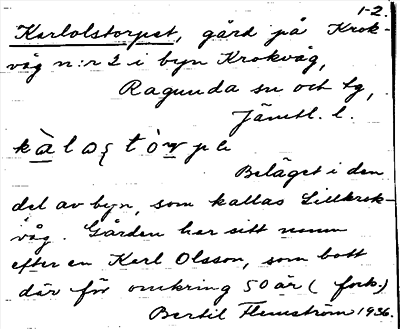 1-2.
Karlolstorpet, gård på Krok-
våg n:r 2 i byn Krokvåg,
Ragunda sn och tg,
Jämtl. l.
Beläget i den
del av byn, som kallas Lillkrok-
våg. Gården har sitt namn
efter en Karl Olsson, som bott
där för omkring 50 år (fork.)
Bertil Flemström 1936.